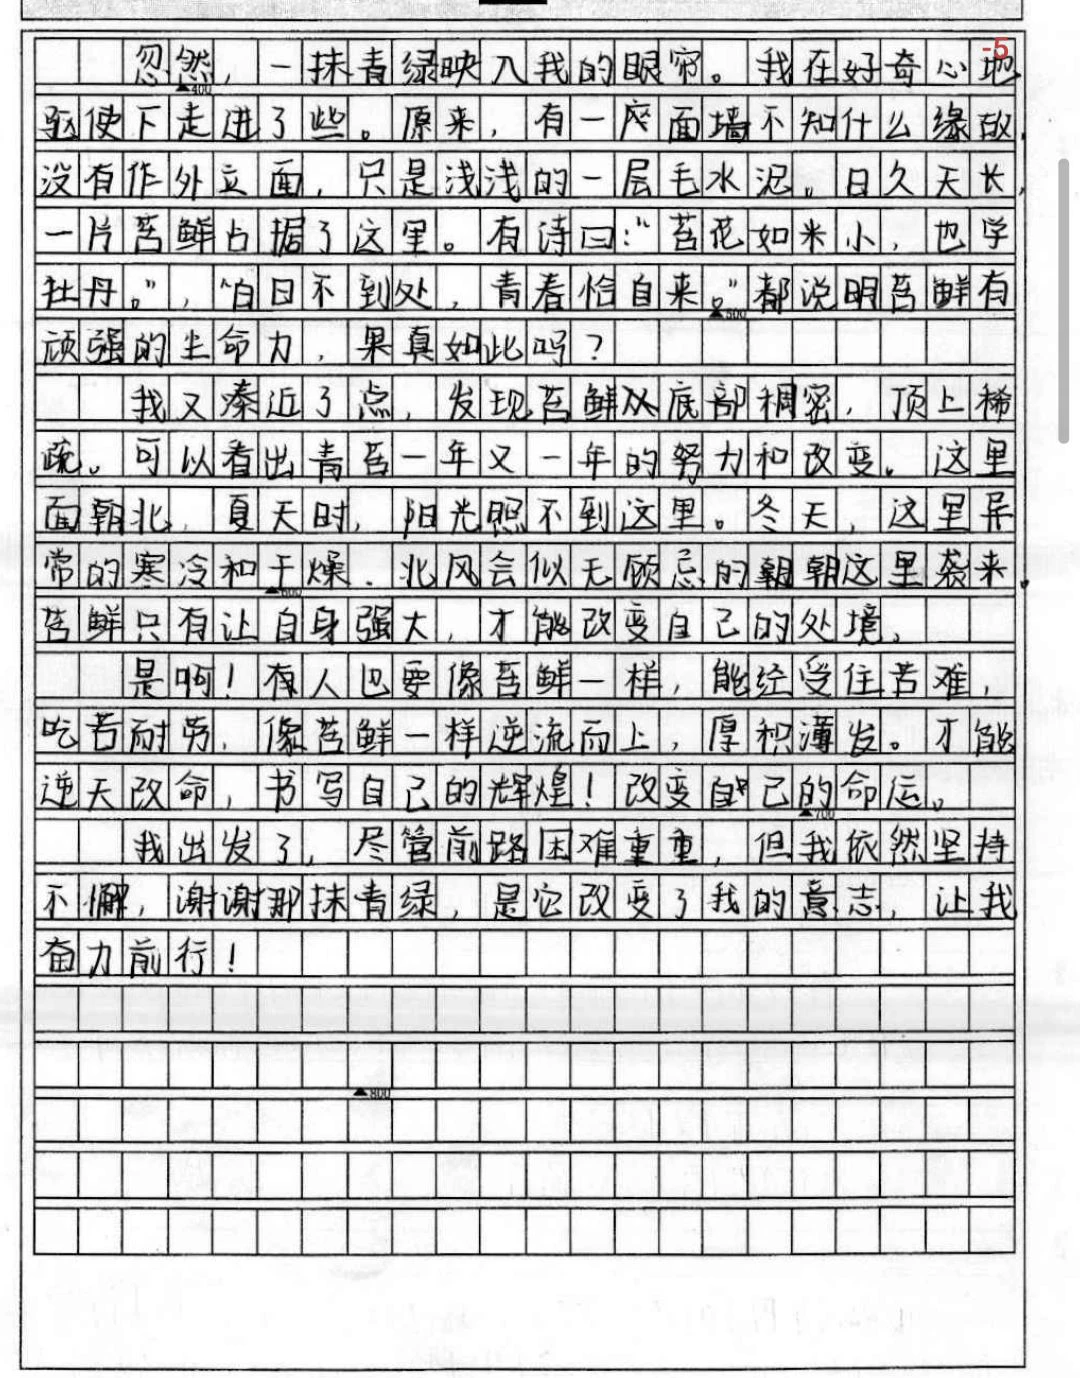 -5
忽然，一抹青绿映入我的眼帘。我在好奇心地
▲400
驱使下走进了些。原来，有一座面墙不知什么缘故，
没有作外立面，只是浅浅的一层毛水泥。日久天长，
一片苔鲜占据了这里。有诗曰："苔花如米小，也学
牡丹。"，"白日不到处，青春恰自来。"都说明苔鲜有
▲500
顽强的生命力，果真如此吗？
我又凑近了点，发现苔鲜从底部稠密，顶上稀
疏。可以看出青苔一年又一年的努力和改变。这里
面朝北，夏天时，阳光照不到这里。冬天，这里异
常的寒冷和干燥．北风会似无顾忌的朝朝这里袭来。
▲600
苔鲜只有让自身强大，才能改变自己的处境，
是啊！有人也要像苔鲜一样，能经受住苦难，
吃苦耐劳，像苔鲜一样逆流而上，厚积薄发。才能
逆天改命，书写自己的辉煌！改变自己的命运。
▲700
我出发了，尽管前路困难重重，但我依然坚持
不懈，谢谢那抹青绿，是它改变了我的意志，让我
奋力前行！
▲800